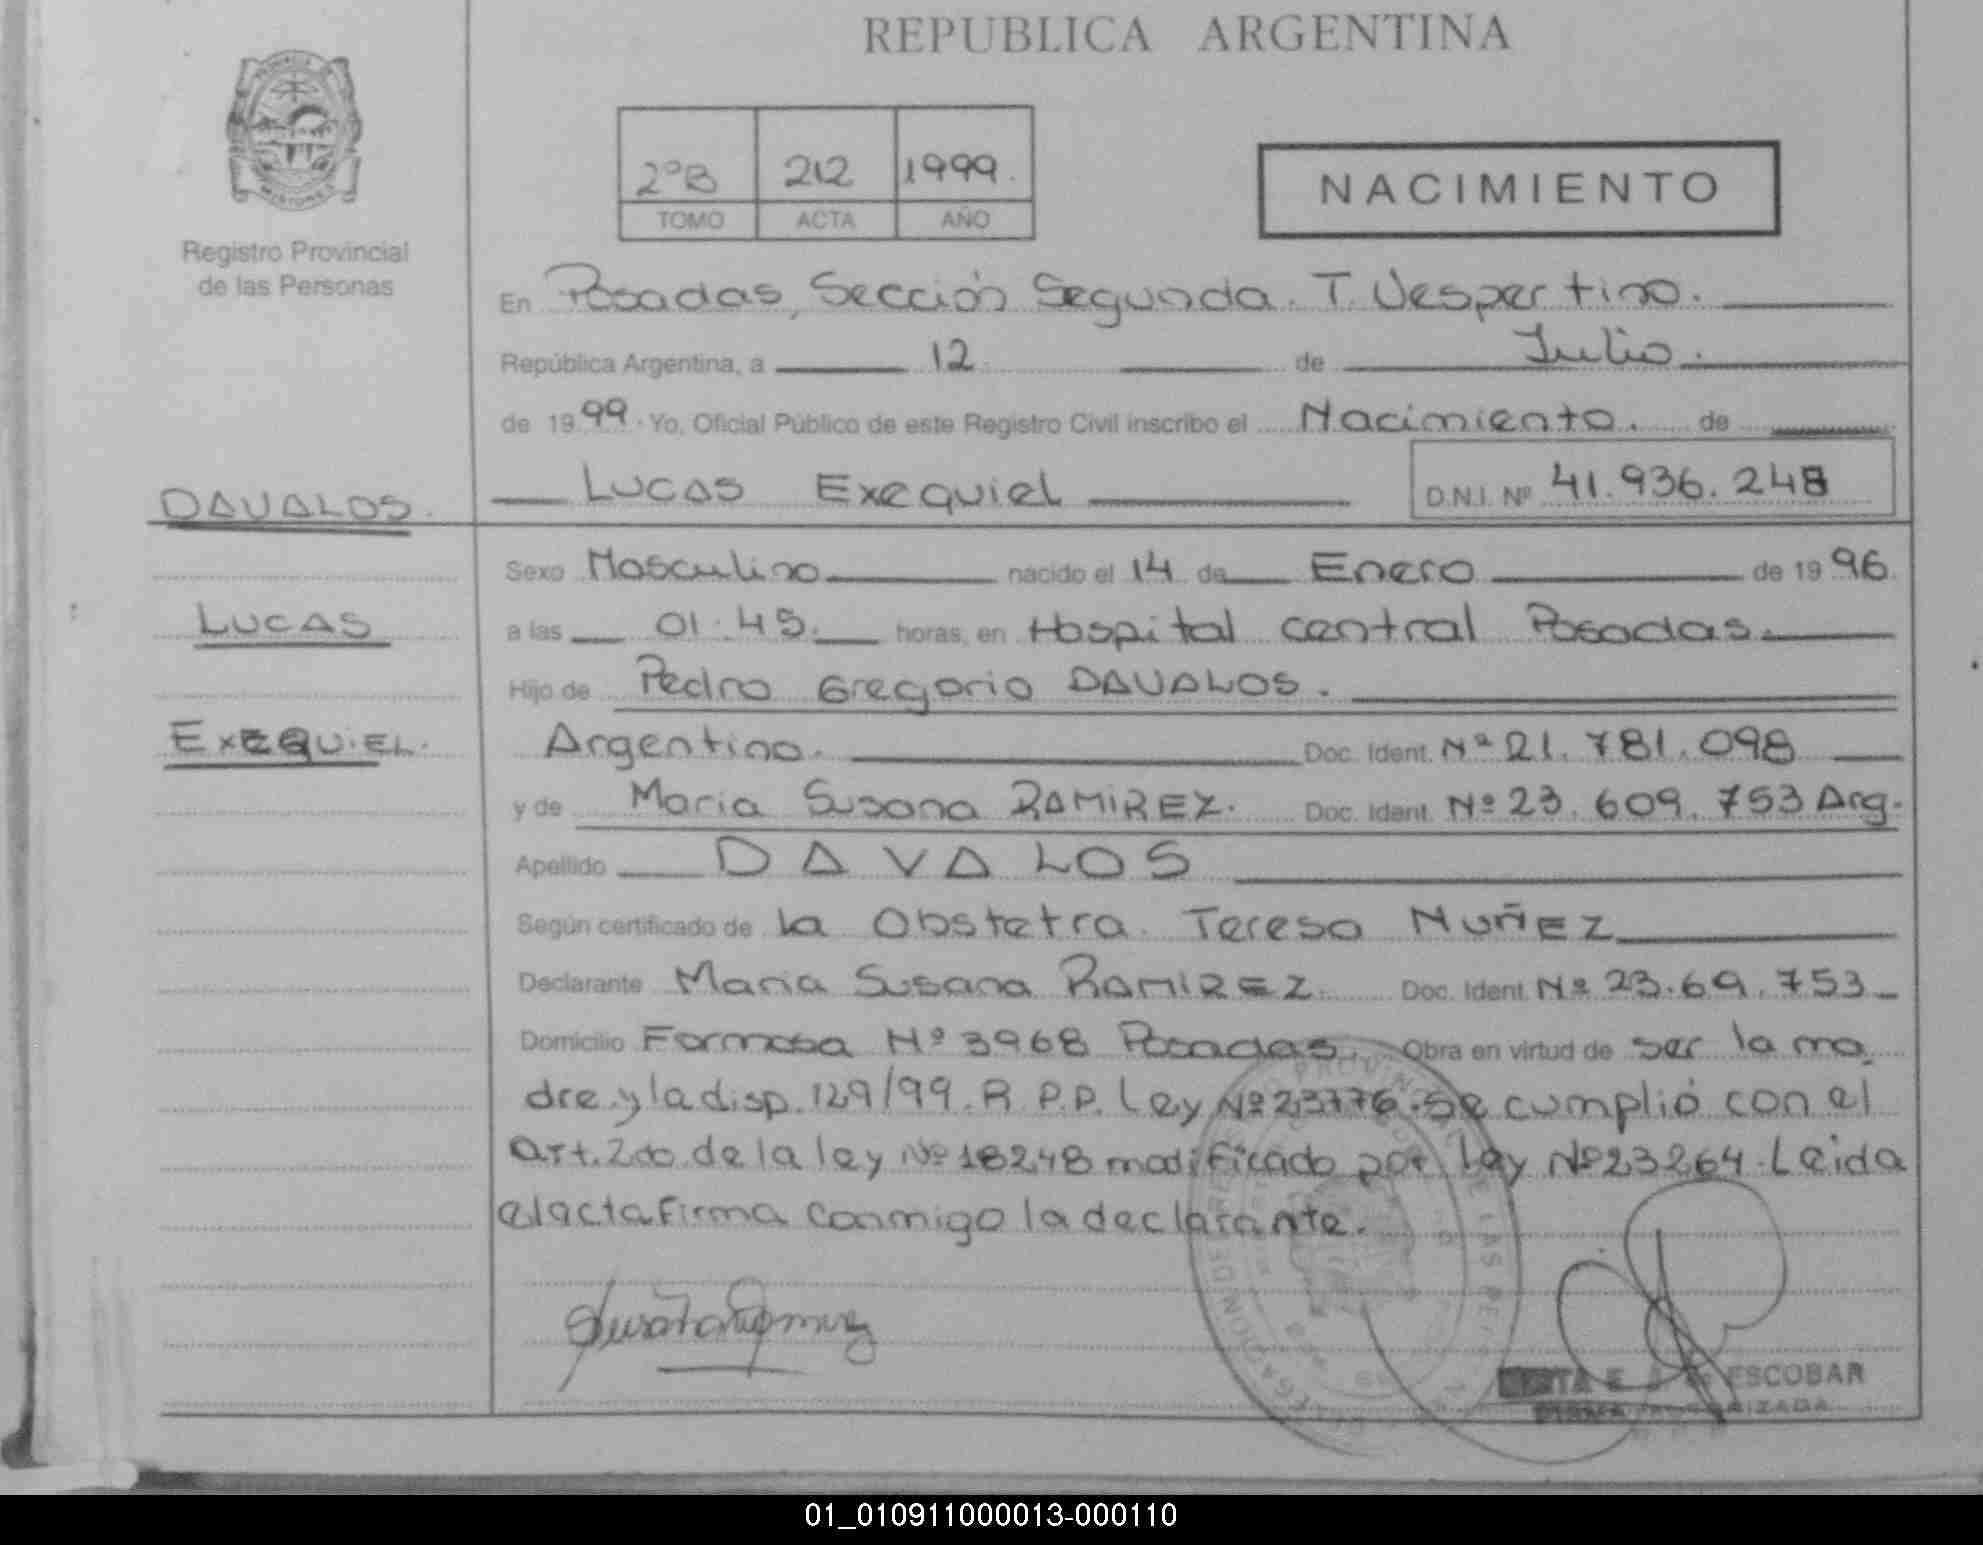 REPUBLICA ARGENTINA
2ºB 212 1999.
TOMO ACTA AÑO
NACIMIENTO
Registro Provincial
de las Personas
En Posadas, Sección Segunda. T. Vespertino.
República Argentina, a 12 de Julio.
de 19 99. Yo, Oficial Público de este Registro Civil inscribo el Nacimiento. de
Lucas Exequiel D.N.I. Nº 41.936.248
DAVALOS.
LUCAS
EXEQUIEL.
Sexo Masculino nacido el 14 de Enero de 19 96.
a las 01:45. horas, en Hospital central Posadas.
Hijo de Pedro Gregorio DAVALOS.
Argentino. Doc. Ident. Nº 21.781.098
y de Maria Susana RAMIREZ. Doc. Ident. Nº 23.609.753 Arg.
Apellido DAVALOS
Según certificado de la Obstetra. Teresa NUÑEZ
Declarante Maria Susana RAMIREZ. Doc. Ident. Nº 23.69.753
Domicilio Formosa Nº 3968 Posadas. Obra en virtud de ser la ma
dre y la disp. 129/99. R.P.P. Ley Nº 23776. Se cumplió con el
art. 2do. de la ley Nº 18248 modificado por ley Nº 23264. Leida
el acta firma conmigo la declarante.
ESCOBAR
01_010911000013-000110